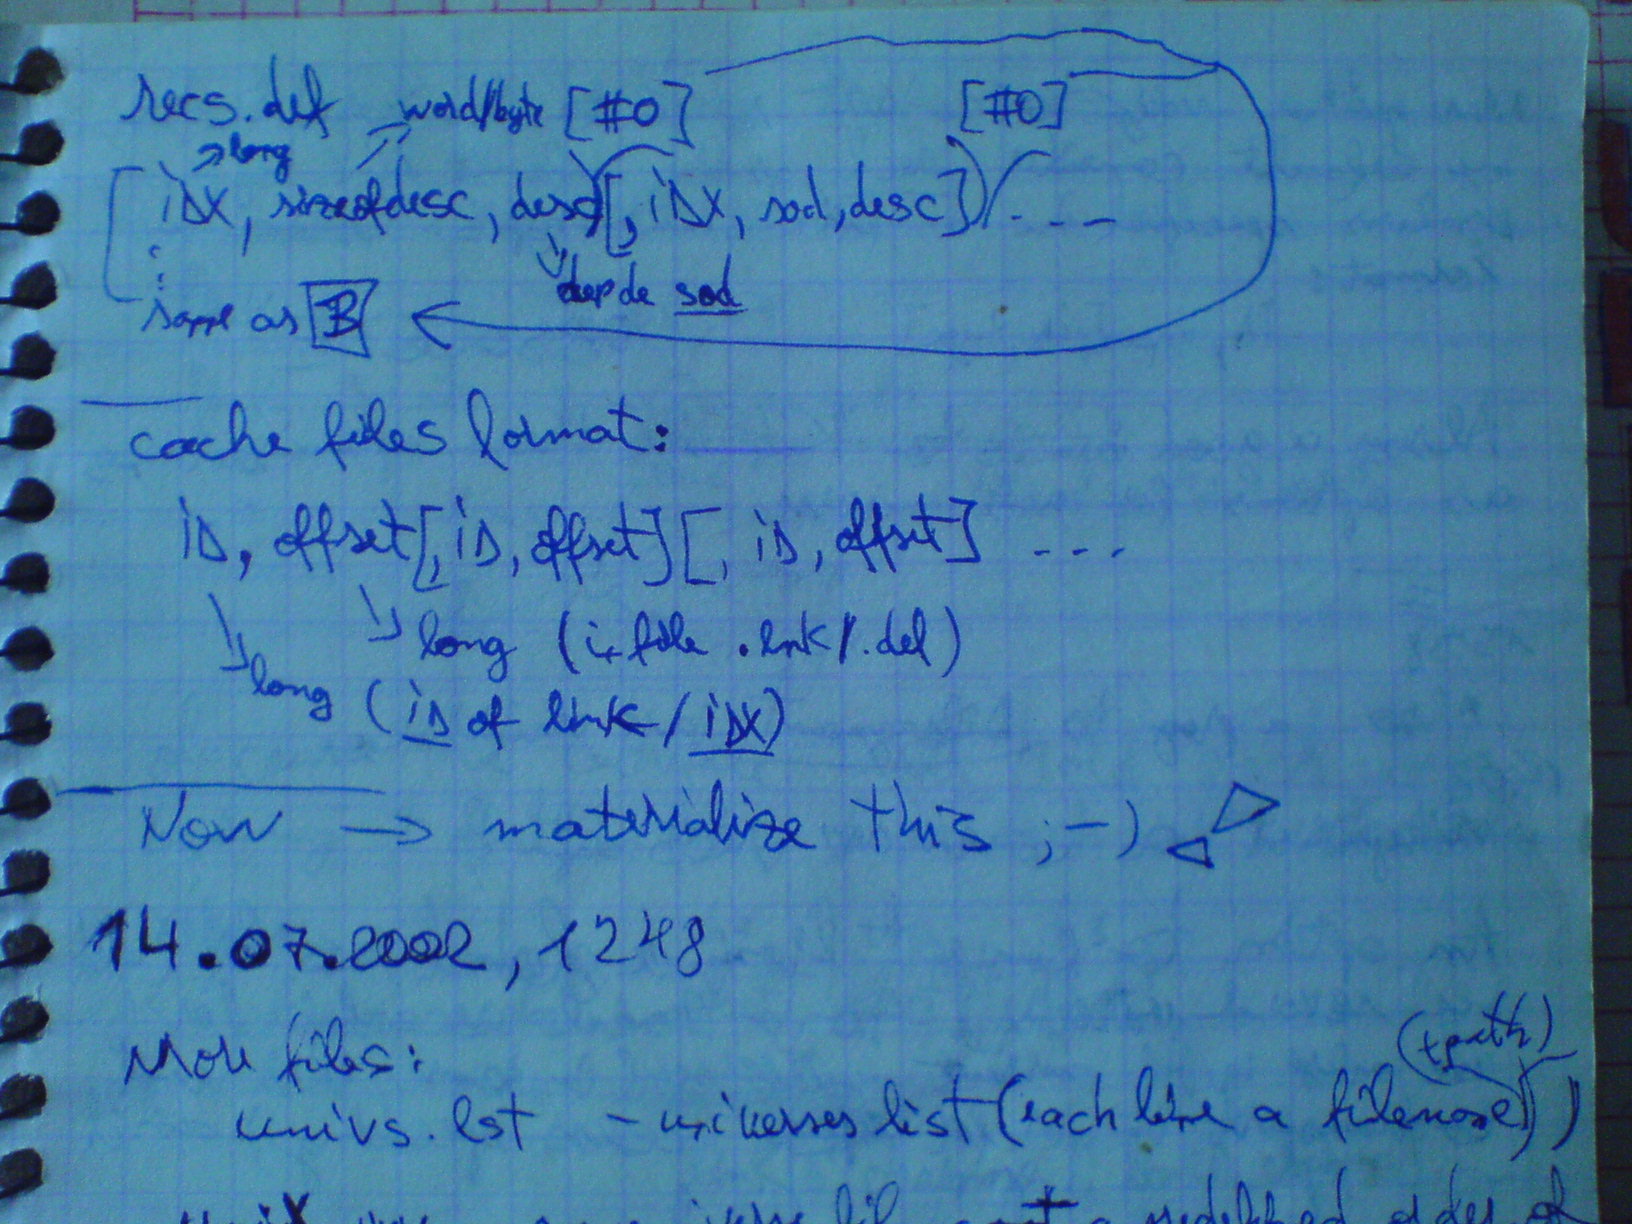 recs.def word/byte [#0] [#0]
long
iDX, sizeofdesc, desc [, iDX, sod, desc] . - - -
dep de sod
same as B
cache files format:
iD, offset [, iD, offset] [, iD, offset] - - - -
long (in file .lnk/.del)
long (iD of link / iDX)
Now → materialize this ;-)
14.07.2002, 1248
(+path)
More files:
univs.lst - universes list (each line a filename)